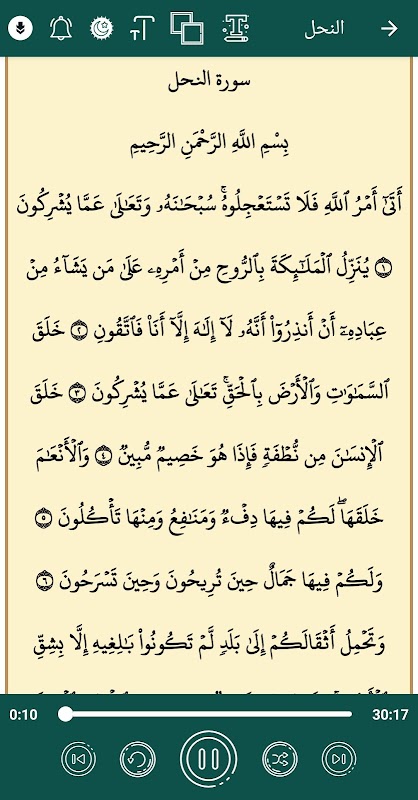 النحل
سورة النحل
بِسْمِ اللَّهِ الرَّحْمَنِ الرَّحِيمِ
أَتَىٰٓ أَمْرُ ٱللَّهِ فَلَا تَسْتَعْجِلُوهُ ۚ سُبْحَٰنَهُۥ وَتَعَٰلَىٰ عَمَّا يُشْرِكُونَ
١ يُنَزِّلُ ٱلْمَلَٰٓئِكَةَ بِٱلرُّوحِ مِنْ أَمْرِهِۦ عَلَىٰ مَن يَشَآءُ مِنْ
عِبَادِهِۦٓ أَنْ أَنذِرُوٓا۟ أَنَّهُۥ لَآ إِلَٰهَ إِلَّآ أَنَا۠ فَٱتَّقُونِ ٢ خَلَقَ
ٱلسَّمَٰوَٰتِ وَٱلْأَرْضَ بِٱلْحَقِّ ۚ تَعَٰلَىٰ عَمَّا يُشْرِكُونَ ٣ خَلَقَ
ٱلْإِنسَٰنَ مِن نُّطْفَةٍ فَإِذَا هُوَ خَصِيمٌ مُّبِينٌ ٤ وَٱلْأَنْعَٰمَ
خَلَقَهَا ۗ لَكُمْ فِيهَا دِفْءٌ وَمَنَٰفِعُ وَمِنْهَا تَأْكُلُونَ ٥
وَلَكُمْ فِيهَا جَمَالٌ حِينَ تُرِيحُونَ وَحِينَ تَسْرَحُونَ ٦
وَتَحْمِلُ أَثْقَالَكُمْ إِلَىٰ بَلَدٍ لَّمْ تَكُونُوا۟ بَٰلِغِيهِ إِلَّا بِشِقِّ
0:10 30:17